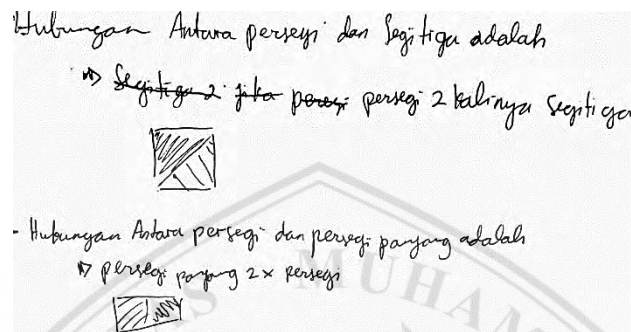 Hubungan Antara persegi dan Segitiga adalah
⇒ Segitiga 2 jika persegi persegi 2 kalinya Segitiga
- Hubungan Antara persegi dan persegi panjang adalah
⇒ persegi panjang 2x persegi
S MUHAM